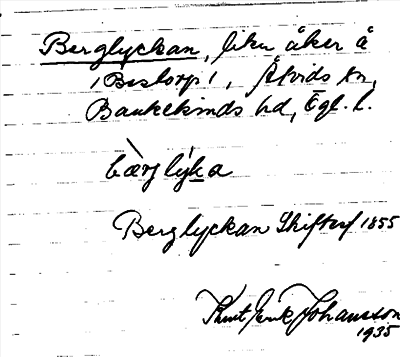 Berglyckan, liten åker å
/Bestorp/, Åtvids sn,
Bankekinds hd, Ögl. l.
bærj lýka
Berglyckan Skiftesk 1855
Knut Erik Johansson
1935